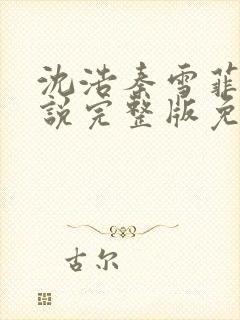 沈浩秦雪菲
說完整版免
古尔